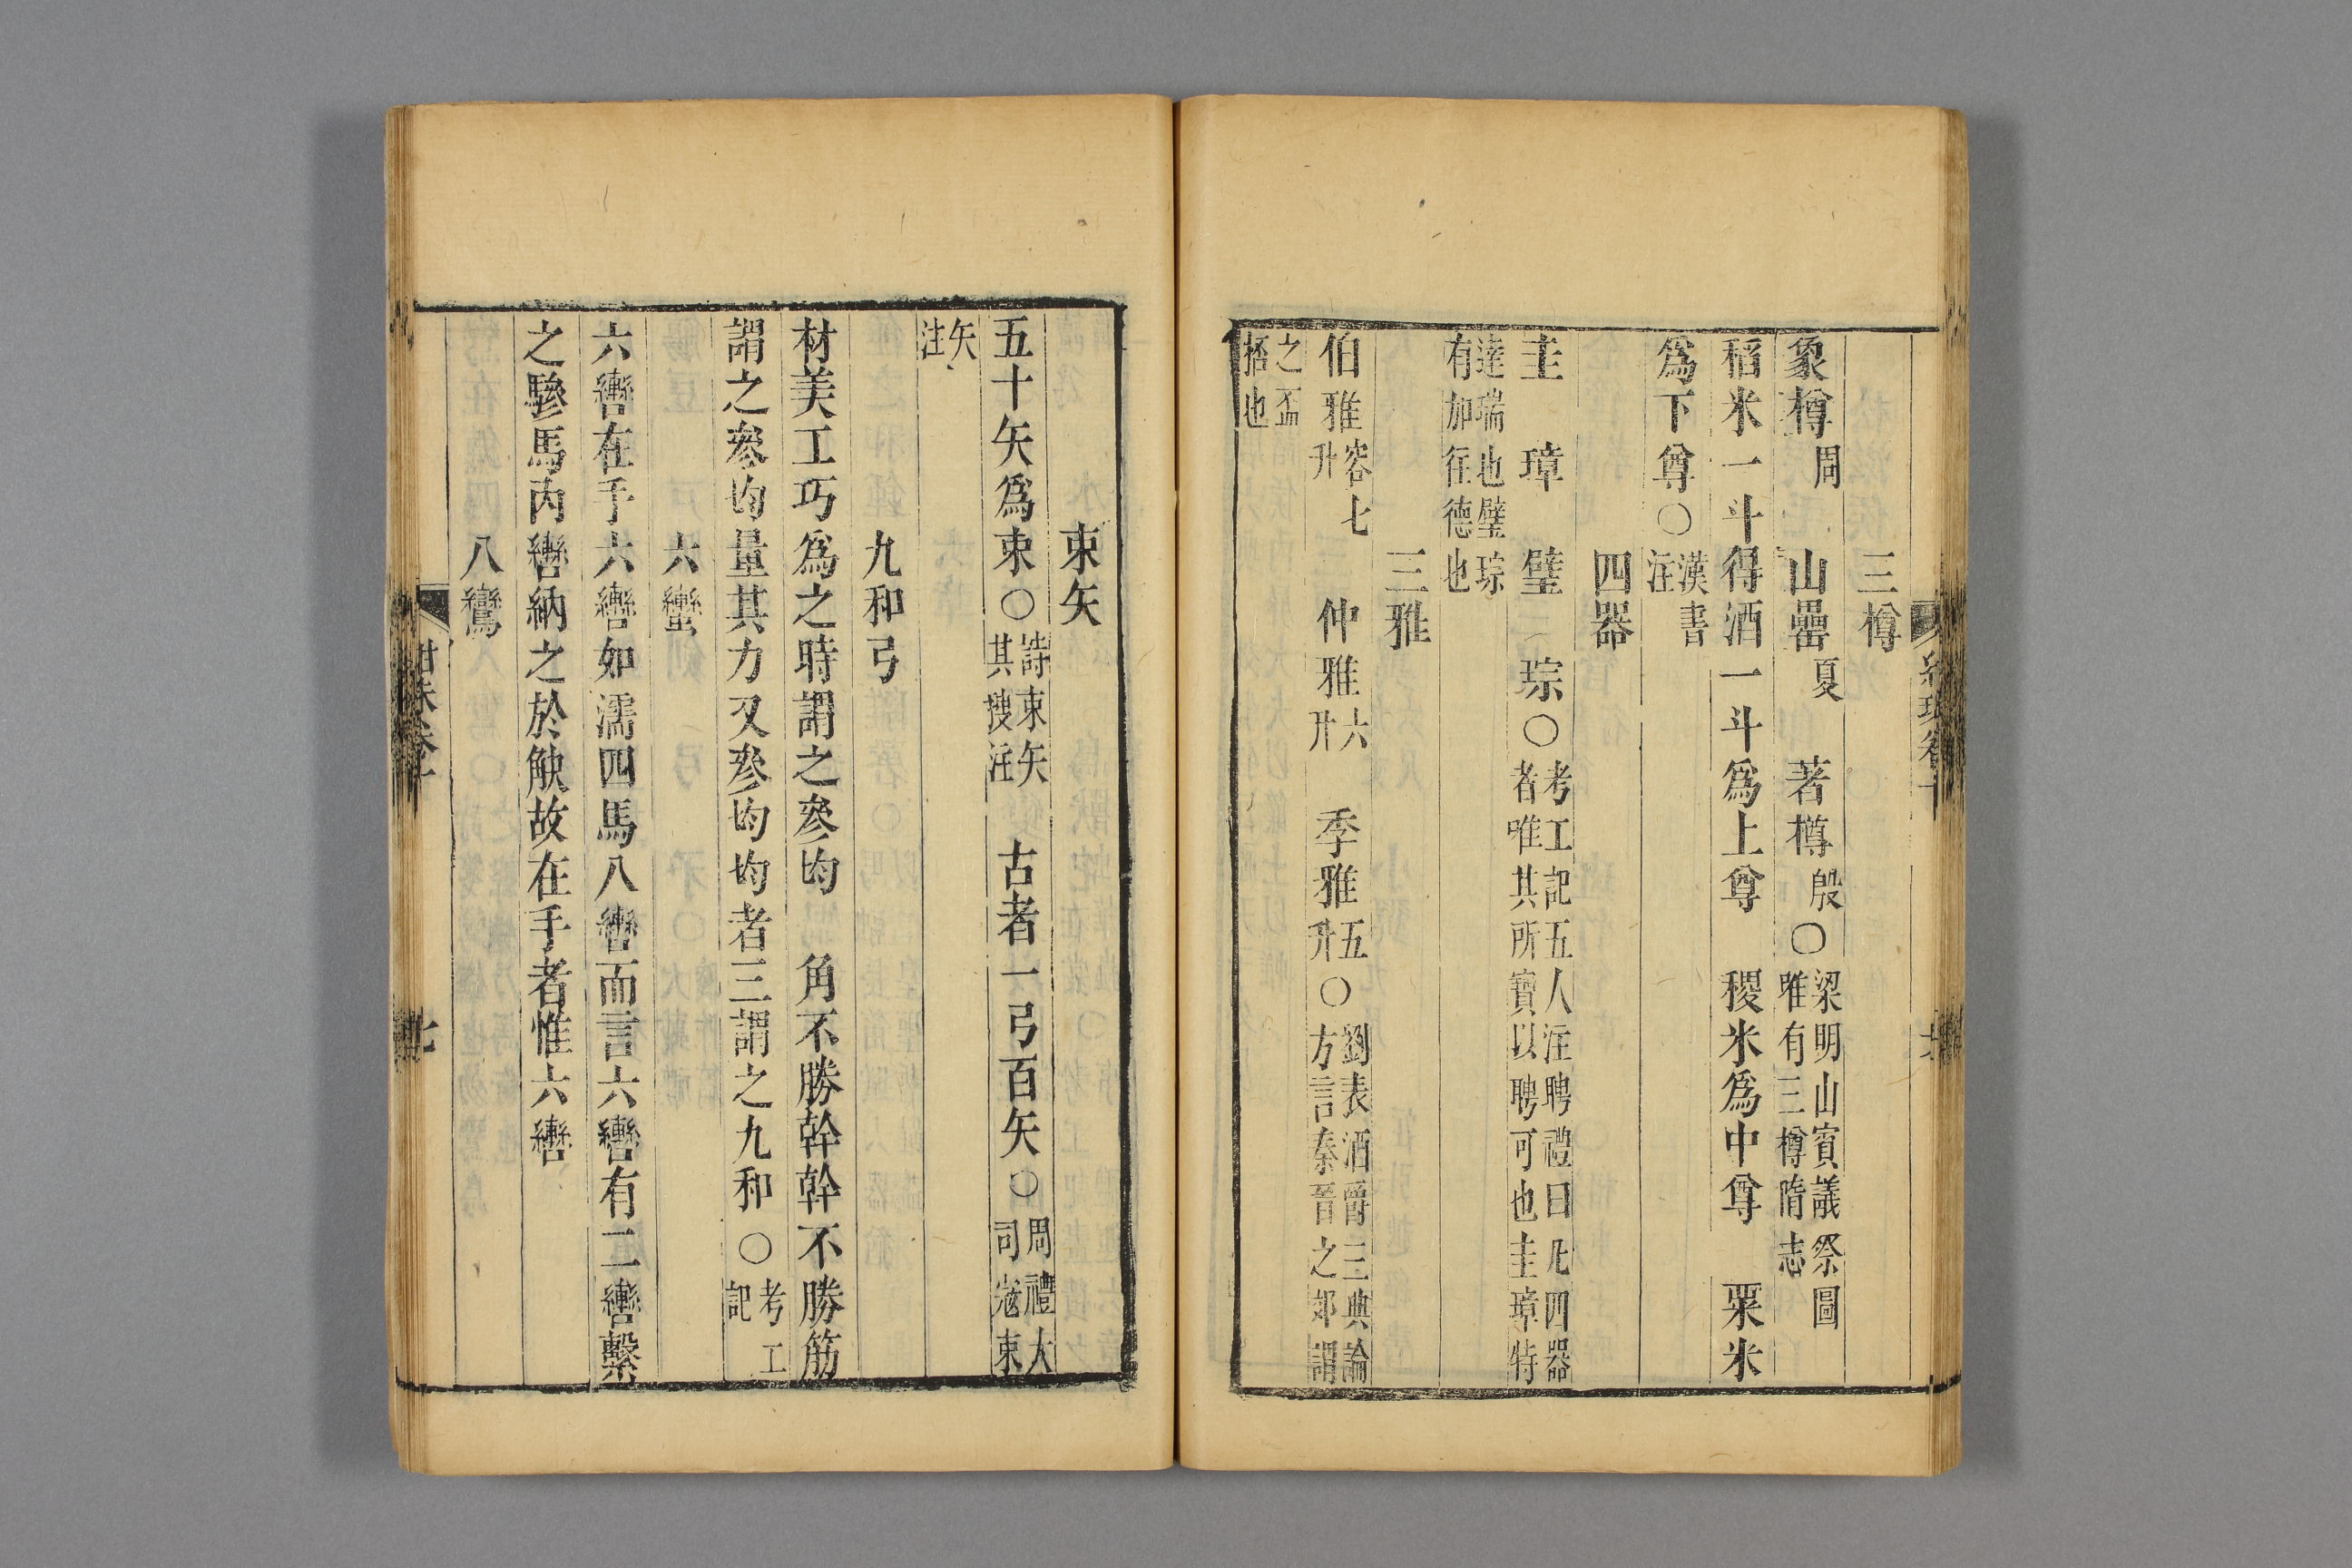 三樽
象樽周 山罍夏 著樽殷○梁明山賓議祭圖唯有三樽隋志
稻米一斗得酒一斗爲上尊 稷米爲中尊 粟米
爲下尊○漢書注
四器
圭 璋 璧 琮○考工記五人注聘禮曰凡四器者唯其所寶以聘可也圭璋特
達瑞也璧琮有加往德也
三雅
伯雅容七升 仲雅六升 季雅五升○劉表酒爵三典論方言秦晉之郊謂
之盃㮎也
束矢
五十矢爲束○詩束矢其搜注 古者一弓百矢○周禮大司寇束
矢注
九和弓
材美工巧爲之時謂之參均 角不勝幹幹不勝筋
謂之參均量其力又參均均者三謂之九和○考工記
六轡
六轡在手六轡如濡四馬八轡而言六轡有二轡繫
之驂馬內轡納之於觖故在手者惟六轡
八鸞